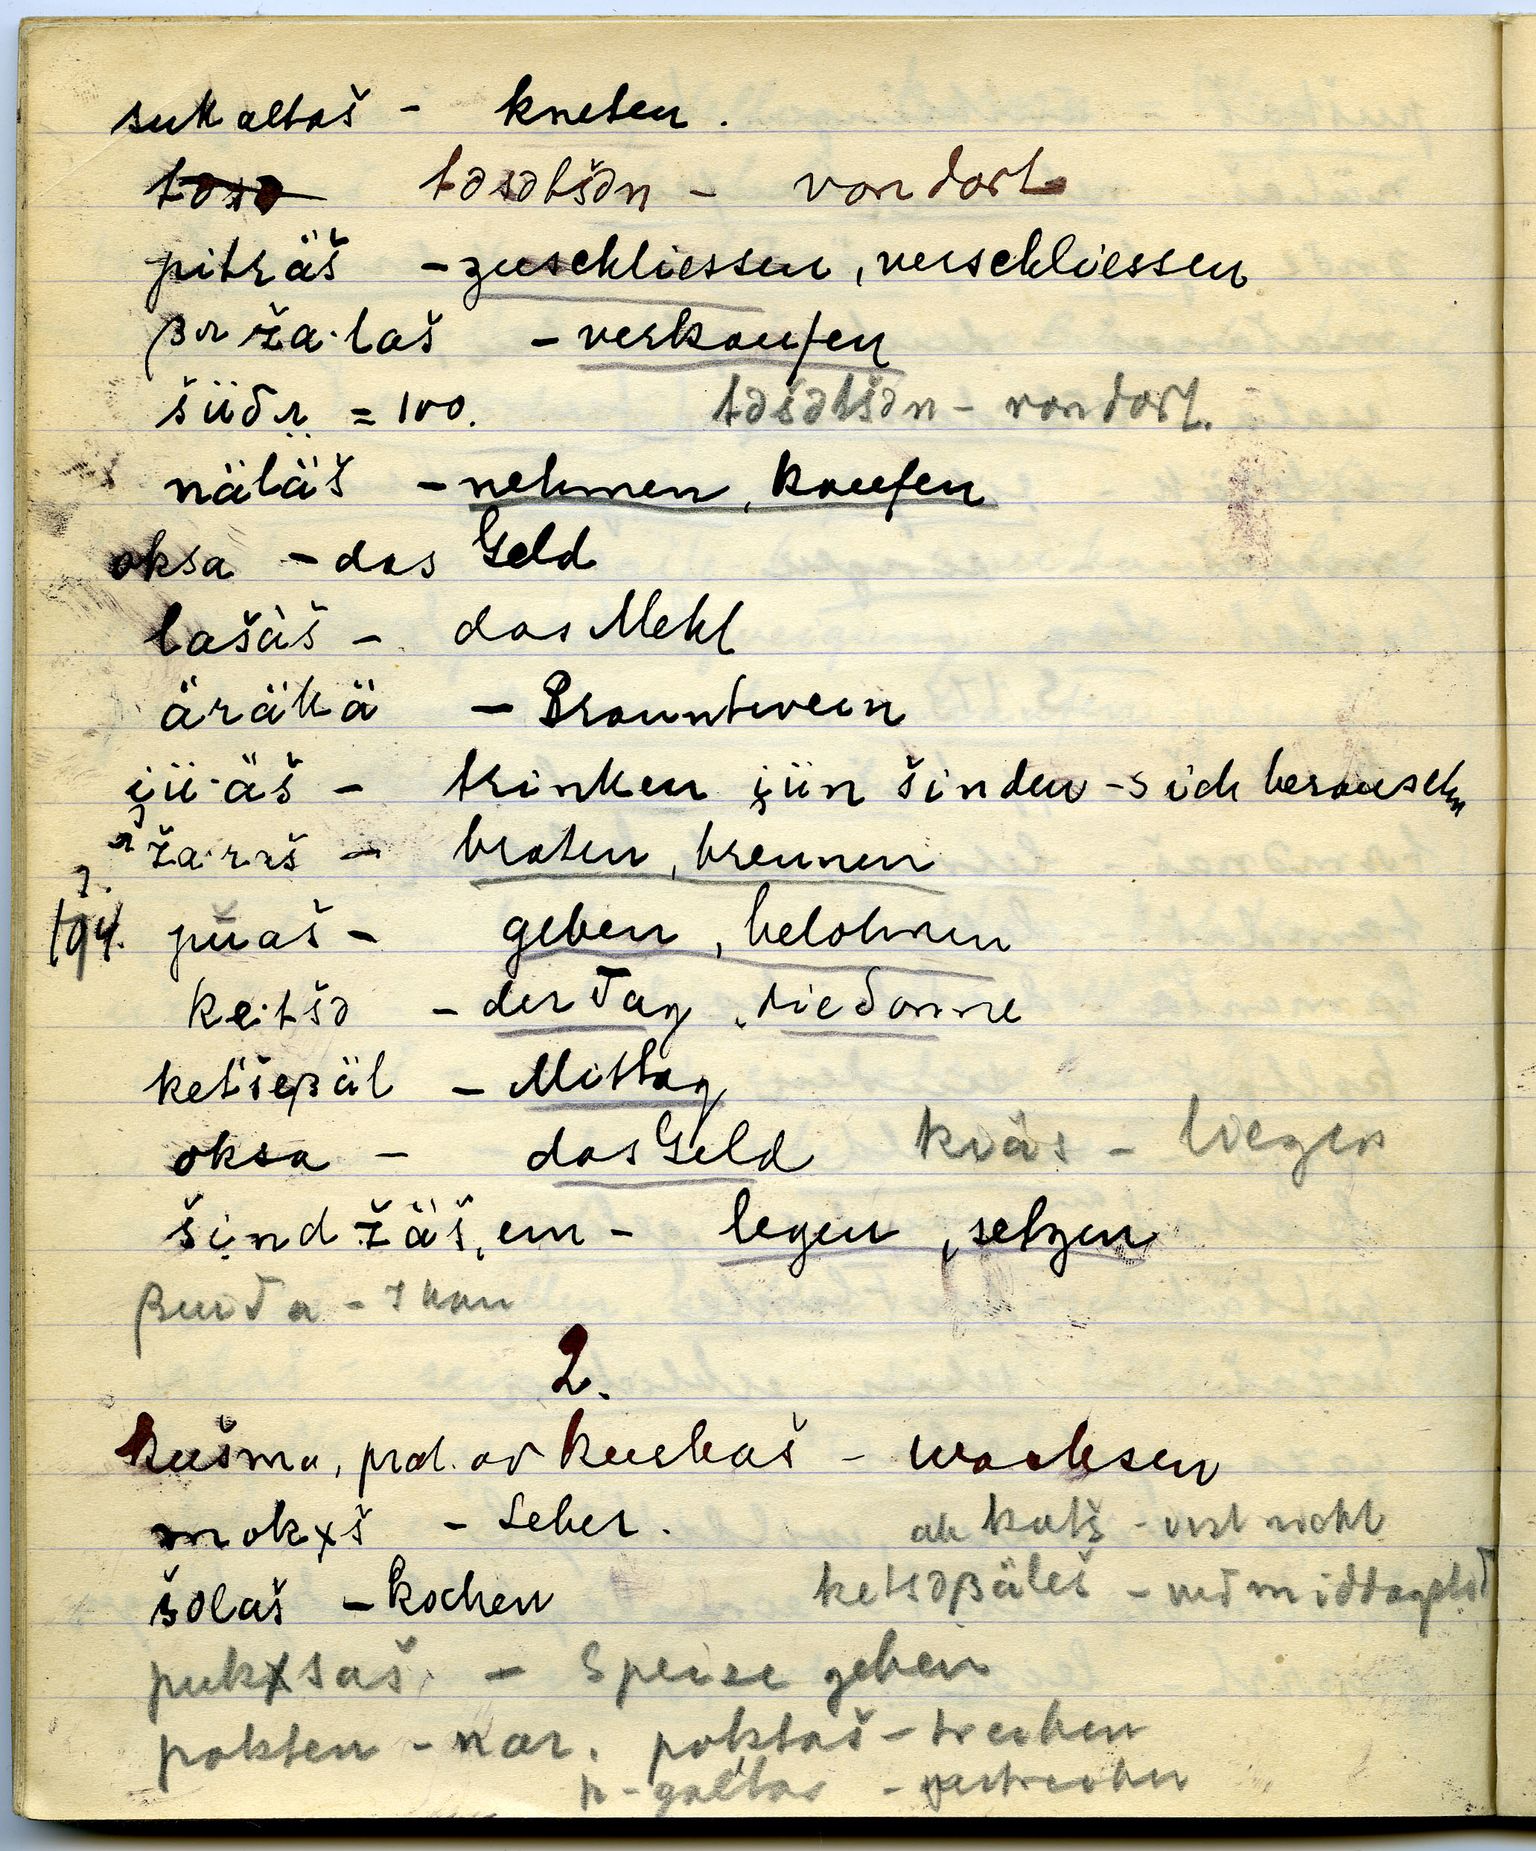 sukaltaš – kneten.
təsə təsətšən – von dort
piträš – zuschliessen, verschliessen
βɪžalaš – verkaufen
šüδɪ = 100. təšətšən – von dort.
näläš – nehmen, kaufen
oksa – das Geld
lašàš – das Mehl
äräkä – Branntwein
i̯ü·äš – trinken i̯ün šinden – sich berauschen
ža·rɪš – braten, brennen
194. puaš – geben, belohnen
ke·tšə – der Tag, die Sonne
ketšeβäl – Mittag
oksa – das Geld kiäš – liegen
šindžäš, em – legen, setzen
2.
kušma, prät. av kuškaš – wachsen
mokxš – Leber.
šolaš – kochen ketsəβäleš – ved middagstid
pukšaš – Speise geben
pokten – nar. poktaš – treiben